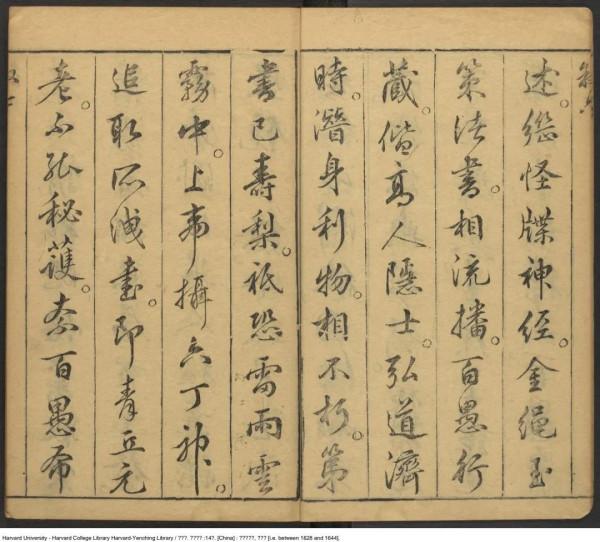 述。緃怪牒神經。金繩玉
策。法書相流播。百愚行
藏。偕高人隱士。弘道濟
時。潛身利物。相不朽。第
書已壽梨。祇恐雷雨雲
霧中。上帝攝六丁神。
追取泄書。即青丘元
老。不能秘護。奈百愚布
Harvard University - Harvard College Library Harvard-Yenching Library / ???. ???? :14?. [China] : ?????, ??? [i.e. between 1628 and 1644].